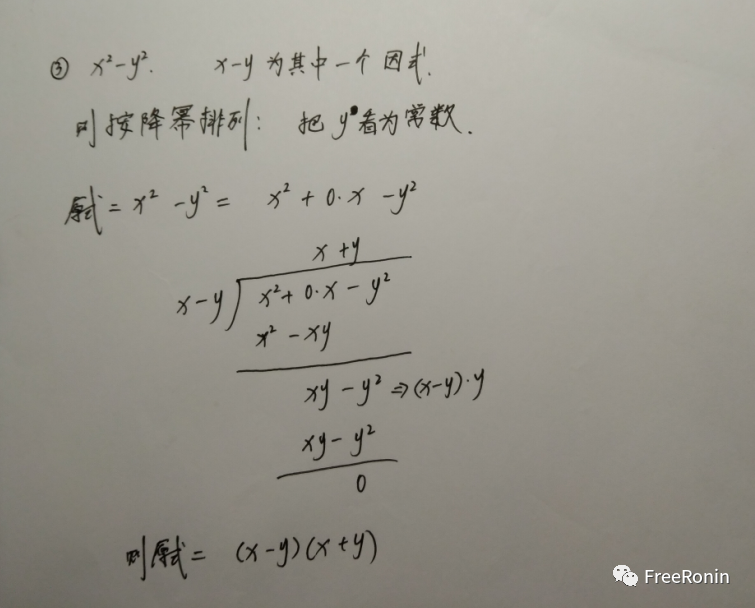 ③ x²-y². x-y 为其中一个因式.
则按降幂排列: 把 y 看为常数.
原式 = x² - y² = x² + 0·x - y²
x + y
x-y x² + 0·x - y²
x² - xy
xy - y² ⇒ (x-y)·y
xy - y²
0
则原式 = (x-y)(x+y)
FreeRonin